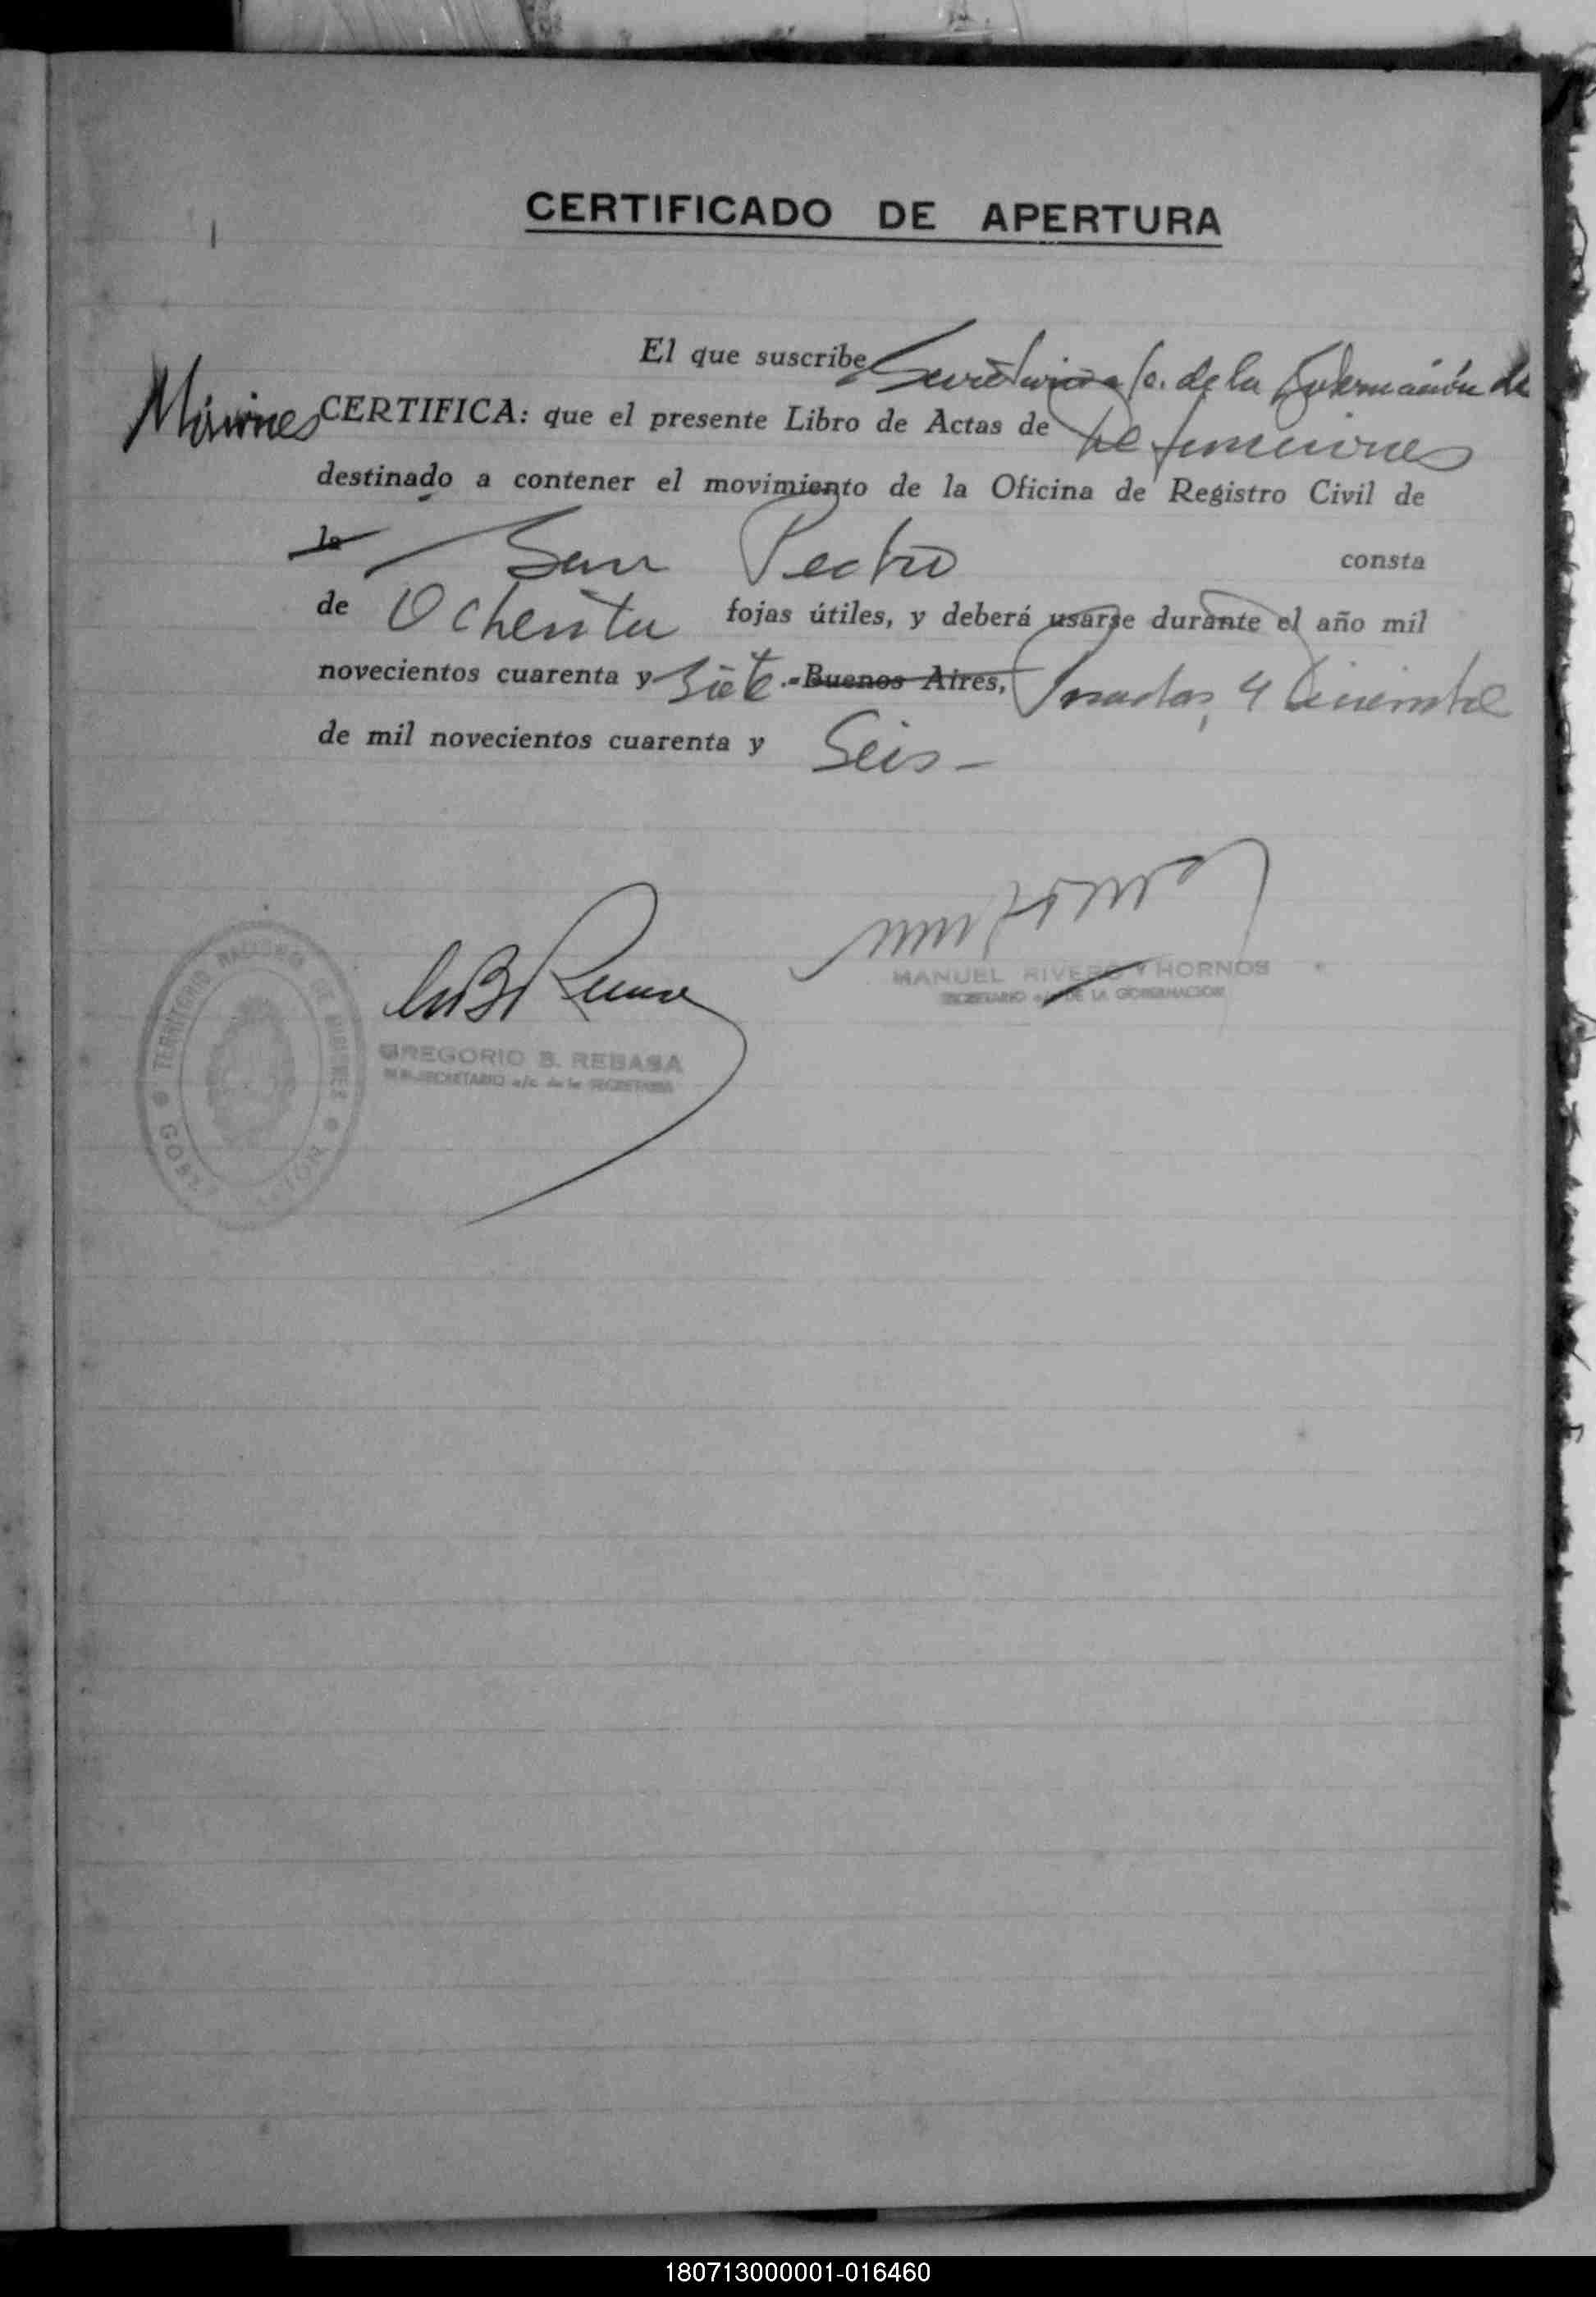 CERTIFICADO DE APERTURA
El que suscribe Secretario a/c. de la Gobernación de
Misiones CERTIFICA: que el presente Libro de Actas de Defunciones
destinado a contener el movimiento de la Oficina de Registro Civil de
la San Pedro consta
de Ochenta fojas útiles, y deberá usarse durante el año mil
novecientos cuarenta y Siete.-Buenos Aires, Posadas, 4 Diciembre
de mil novecientos cuarenta y Seis-
MANUEL RIVERO Y HORNOS
SECRETARIO a/c DE LA GOBERNACION
GREGORIO B. REBASA
SUB-SECRETARIO a/c de la SECRETARIA
TERRITORIO NACIONAL DE MISIONES
180713000001-016460